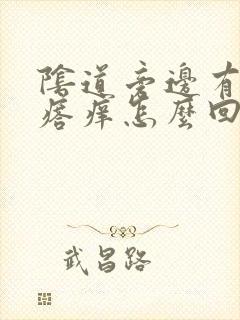 陰道旁邊有
瘩癢怎麼回
武昌路